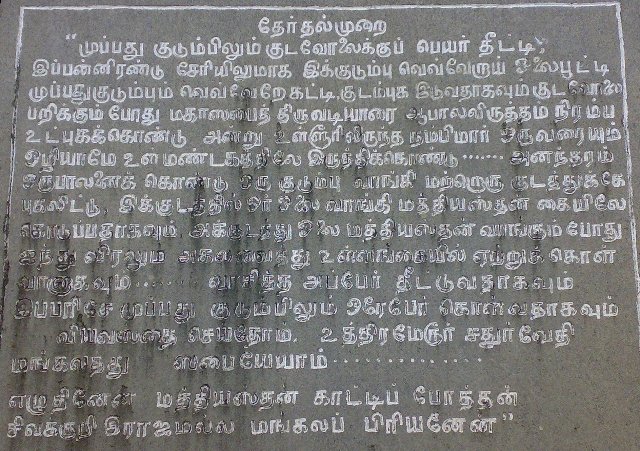 தேர்தல்முறை
"முப்பது குடும்பிலும் குடவோலைக்குப் பெயர் தீட்டி,
இப்பன்னிரண்டு சேரியிலுமாக இக்குடும்பு வெவ்வேறாய் ஓலைபூட்டி
முப்பதுகுடும்பும் வெவ்வேறேகட்டி, குடம்புக இடுவதாகவும் குடவோலை
பறிக்கும் போது மகாஸபைத் திருவடியாரை ஆபாலவிருத்தம் நிரம்ப
உட்புகக்கொண்டு அன்று உள்ளூரிலிருந்த நம்பிமார் ஒருவரையும்
ஒழியாமே உள் மண்டகத்திலே இருத்திக்கொண்டு...... அனந்தரம்
ஒருபாலனைக் கொண்டு ஒரு குடும்பு வாங்கி மற்றொரு குடத்துக்கே
புகலிட்டு, இக்குடத்தில் ஓர் ஓலை வாங்கி மத்தியஸ்தன் கையிலே
கொடுப்பதாகவும் அக்குடத்து ஓலை மத்தியஸ்தன் வாங்கும்போது
ஐந்து விரலும் அகலவைத்து உள்ளங்கையில் ஏற்றுக் கொள்
வானாகவும்...... வாசித்த அப்பேர் தீட்டுவதாகவும்
இப்பரிசே முப்பது குடும்பிலும் ஒரேபேர் கொள்வதாகவும்
வியவஸ்தை செய்தோம். உத்திரமேரூர் சதுர்வேதி
மங்கலத்து ஸபையேயாம்..............
எழுதினேன் மத்தியஸ்தன் காட்டிப் போத்தன்
சிவக்குறி இராஜமல்ல மங்கலப் பிரியனேன்"